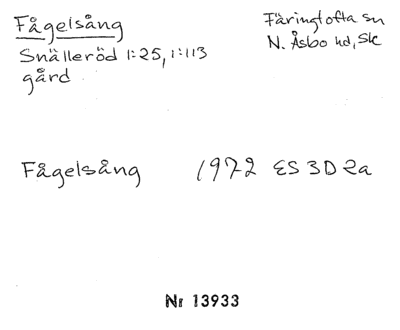 Fågelsång
Snälleröd 1:25, 1:113
gård
Färingtofta sn
N. Åsbo hd, Sk
Fågelsång 1972 ES 3D 2a
Nr 13933